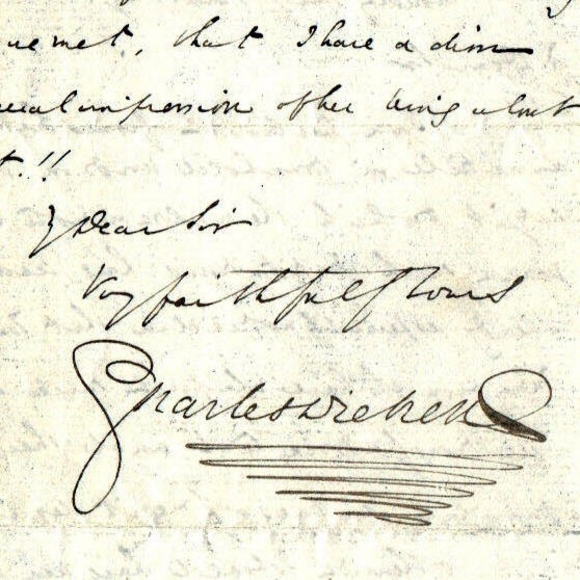 we met, that I have a dim
impression of her being about
t.!!
Dear Sir
Very faithfully Yours
Charles Dickens